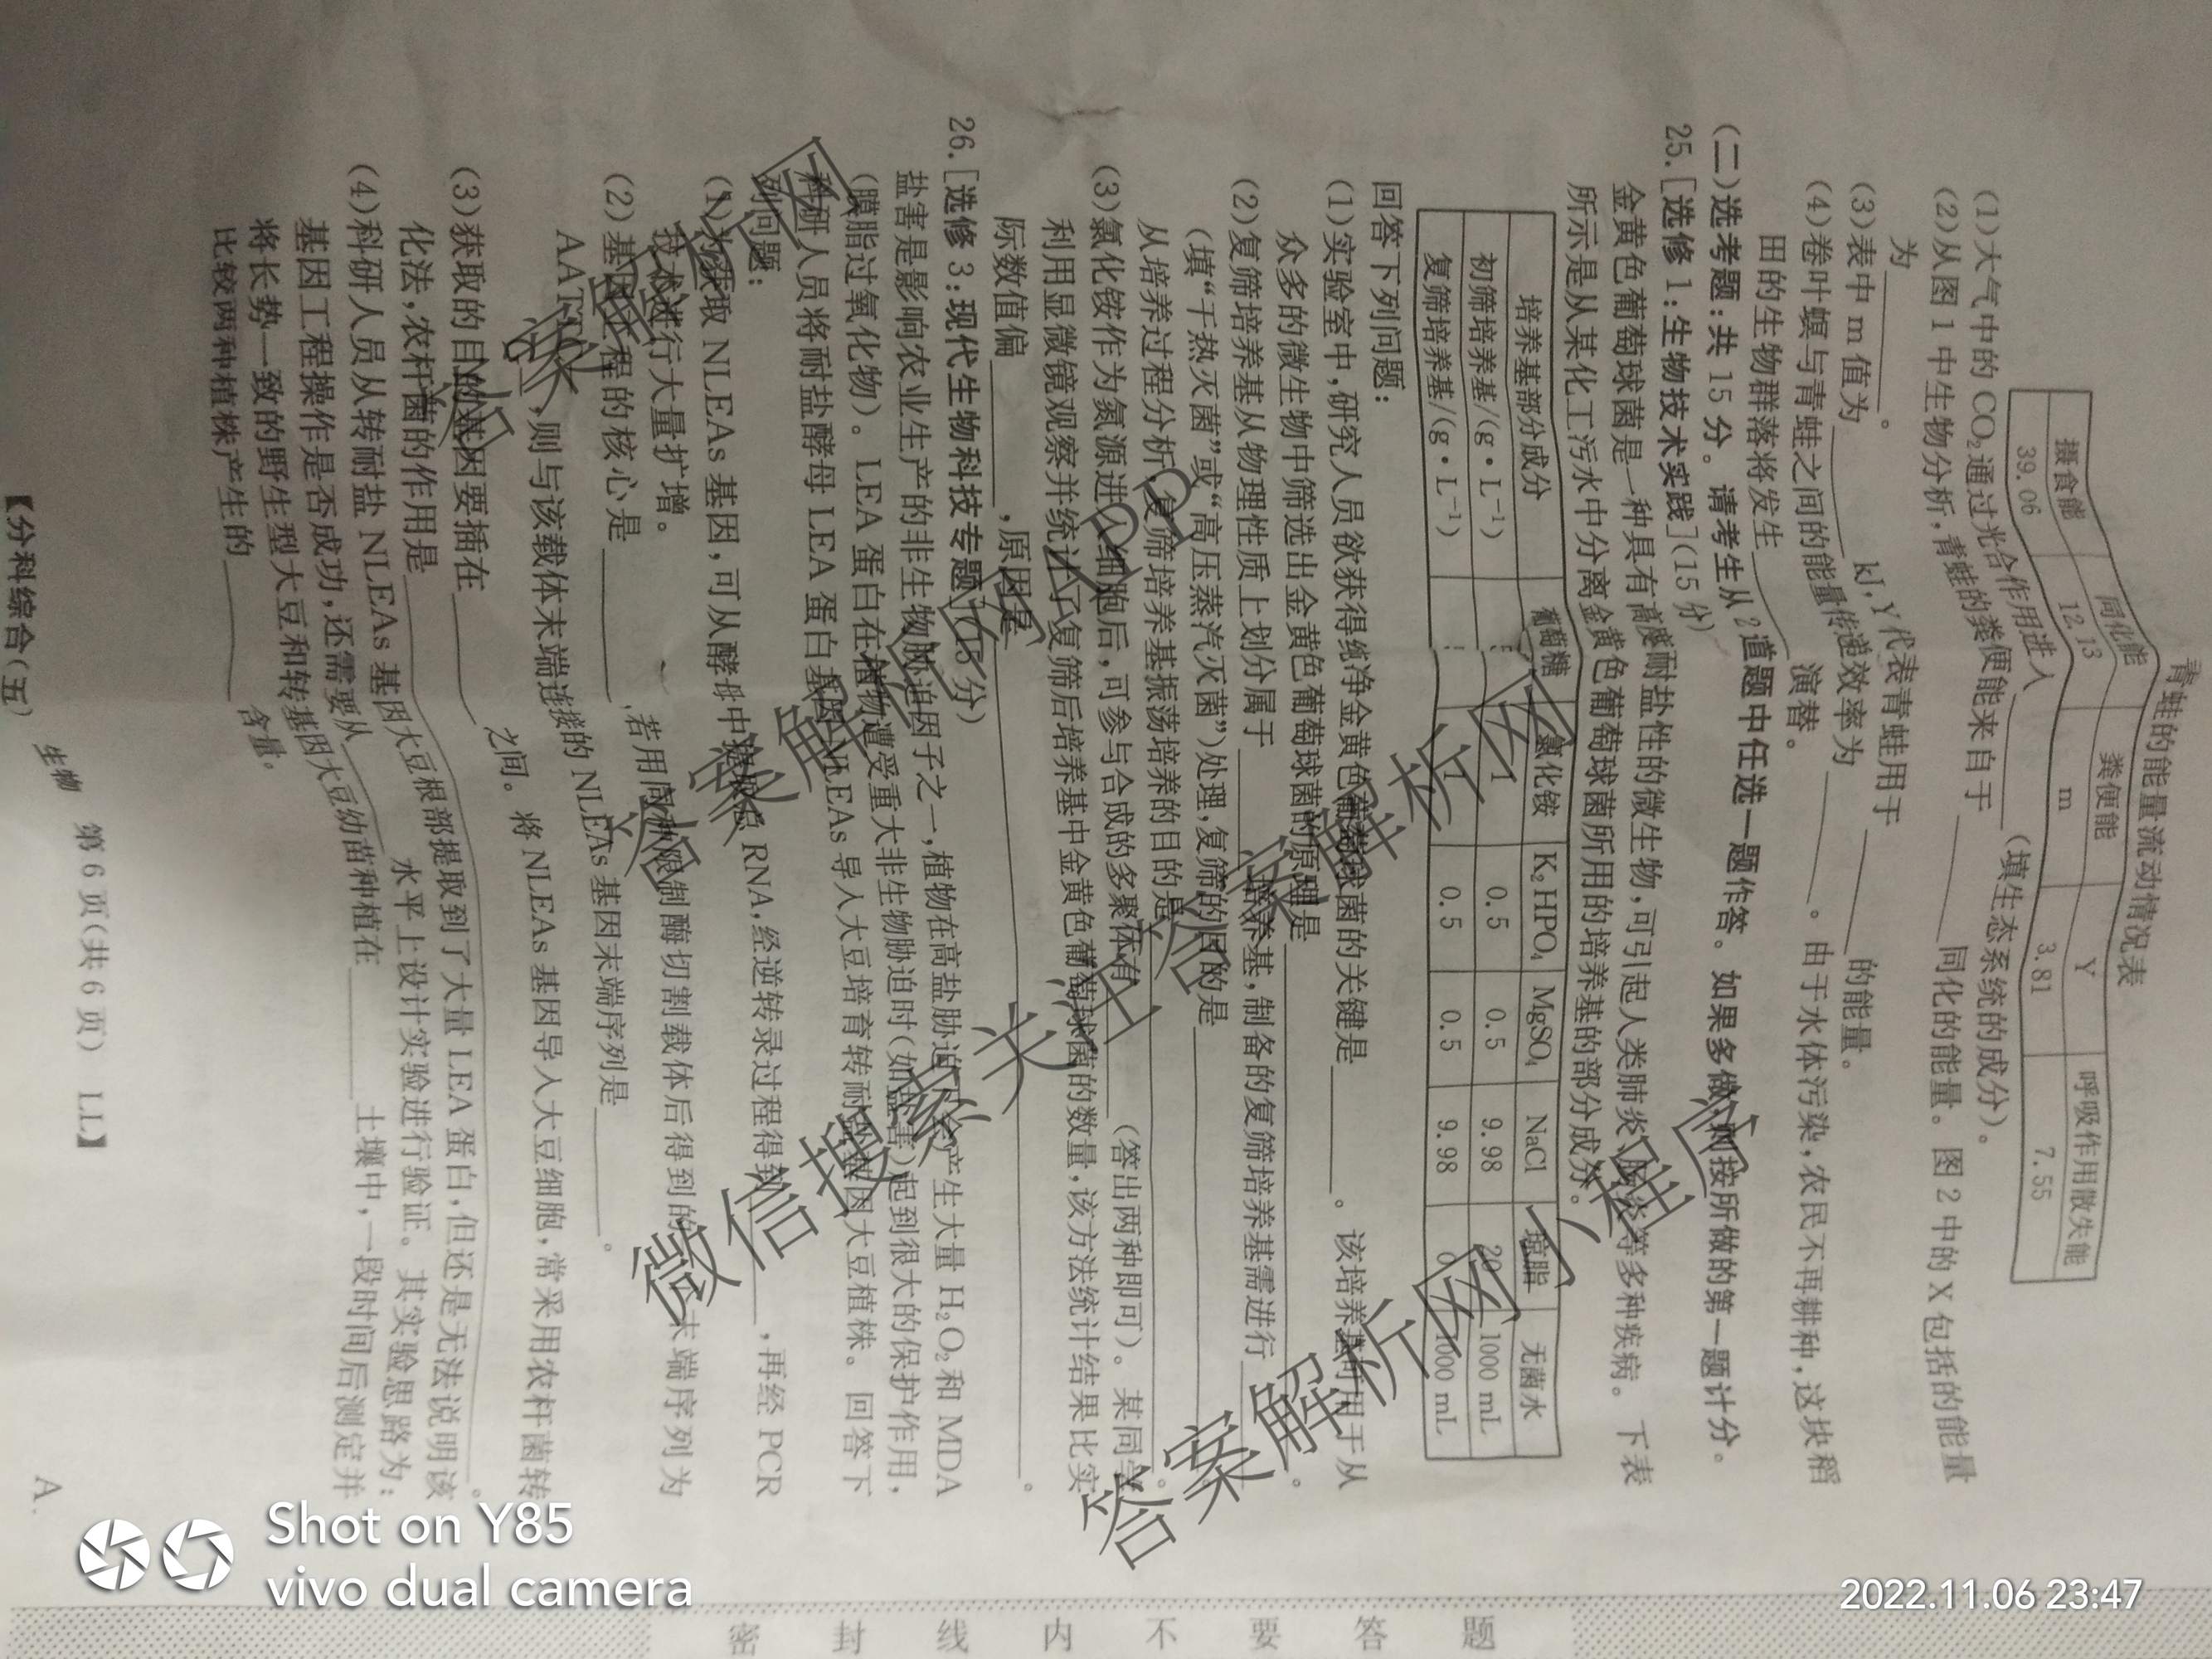 青蛙的能量流动情况表
摄食能 同化能 粪便能 Y 呼吸作用散失能
39.06 12.13 m 3.81 7.55
(1)大气中的CO₂通过光合作用进入______(填生态系统的成分)。
(2)从图1中生物分析,青蛙的粪便能来自于______同化的能量。图2中的X包括的能量
为______。
(3)表中m值为______kJ,Y代表青蛙用于______的能量。
(4)卷叶螟与青蛙之间的能量传递效率为______。由于水体污染,农民不再耕种,这块稻
田的生物群落将发生______演替。
(二)选考题:共15分。请考生从2道题中任选一题作答。如果多做,则按所做的第一题计分。
25.[选修1:生物技术实践](15分)
金黄色葡萄球菌是一种具有高度耐盐性的微生物,可引起人类肺炎、肠炎等多种疾病。下表
所示是从某化工污水中分离金黄色葡萄球菌所用的培养基的部分成分。
培养基部分成分 葡萄糖 氯化铵 K₂HPO₄ MgSO₄ NaCl 琼脂 无菌水
初筛培养基/(g·L⁻¹) 1 0.5 0.5 9.98 20 1000 mL
复筛培养基/(g·L⁻¹) 1 0.5 0.5 9.98 0 1000 mL
回答下列问题:
(1)实验室中,研究人员欲获得纯净金黄色葡萄球菌的关键是______。该培养基可用于从
众多的微生物中筛选出金黄色葡萄球菌的原理是______。
(2)复筛培养基从物理性质上划分属于______培养基,制备的复筛培养基需进行______
(填“干热灭菌”或“高压蒸汽灭菌”)处理,复筛的目的是______。
从培养过程分析,复筛培养基振荡培养的目的是______。
(3)氯化铵作为氮源进入细胞后,可参与合成的多聚体有______(答出两种即可)。某同学
利用显微镜观察并统计了复筛后培养基中金黄色葡萄球菌的数量,该方法统计结果比实
际数值偏______,原因是______。
26.[选修3:现代生物科技专题](15分)
盐害是影响农业生产的非生物胁迫因子之一,植物在高盐胁迫下会产生大量H₂O₂和MDA
(膜脂过氧化物)。LEA蛋白在植物遭受重大非生物胁迫时(如盐害)起到很大的保护作用,
科研人员将耐盐酵母LEA蛋白基因NLEAs导入大豆培育转耐盐基因大豆植株。回答下
列问题:
(1)为获取NLEAs基因,可从酵母中提取总RNA,经逆转录过程得到______,再经PCR
技术进行大量扩增。
(2)基因工程的核心是______,若用同种限制酶切割载体后得到的______末端序列为
，则与该载体末端连接的NLEAs基因末端序列是______。
(3)获取的目的基因要插在______之间。将NLEAs基因导入大豆细胞,常采用农杆菌转
化法,农杆菌的作用是______。
(4)科研人员从转耐盐NLEAs基因大豆根部提取到了大量LEA蛋白,但还是无法说明该
基因工程操作是否成功,还需要从______水平上设计实验进行验证。其实验思路为:
将长势一致的野生型大豆和转基因大豆幼苗种植在______土壤中,一段时间后测定并
比较两种植株产生的______含量。
【分科综合(五) 生物 第6页(共6页) LL】
A.
密 封 线 内 不 要 答 题
微信搜索
答案解析
Shot on Y85
vivo dual camera
2022.11.06 23:47